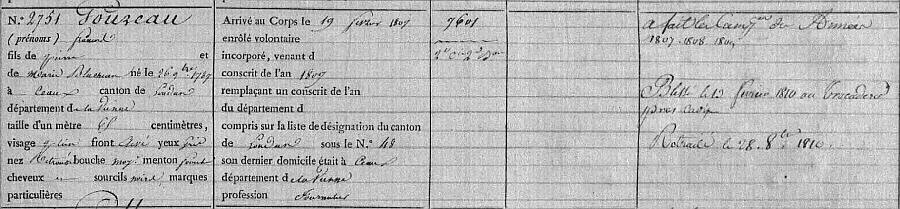 N.º 2751 Gouzeau
(prénoms)
fils de Pierre et
de Marie né le 26 9bre 1787
à Ceaux canton de Loudun
département de la Vienne
taille d'un mètre 65 centimètres,
visage plein front yeux gris
nez bouche moy. menton
cheveux et sourcils noirs, marques
particulières
Arrivé au Corps le 19 février 1807
enrôlé volontaire
incorporé, venant d
conscrit de l'an 1807
remplaçant un conscrit de l'an
du département d
compris sur la liste de désignation du canton
de Loudun sous le N.º 48
son dernier domicile était à Ceaux
département de la Vienne
profession
7601
a fait les camp. des Armées
1807. 1808. 1809
Blessé le 13 février 1810 au Trocadero
près Cadix
Retraité le 28. 8bre 1810.